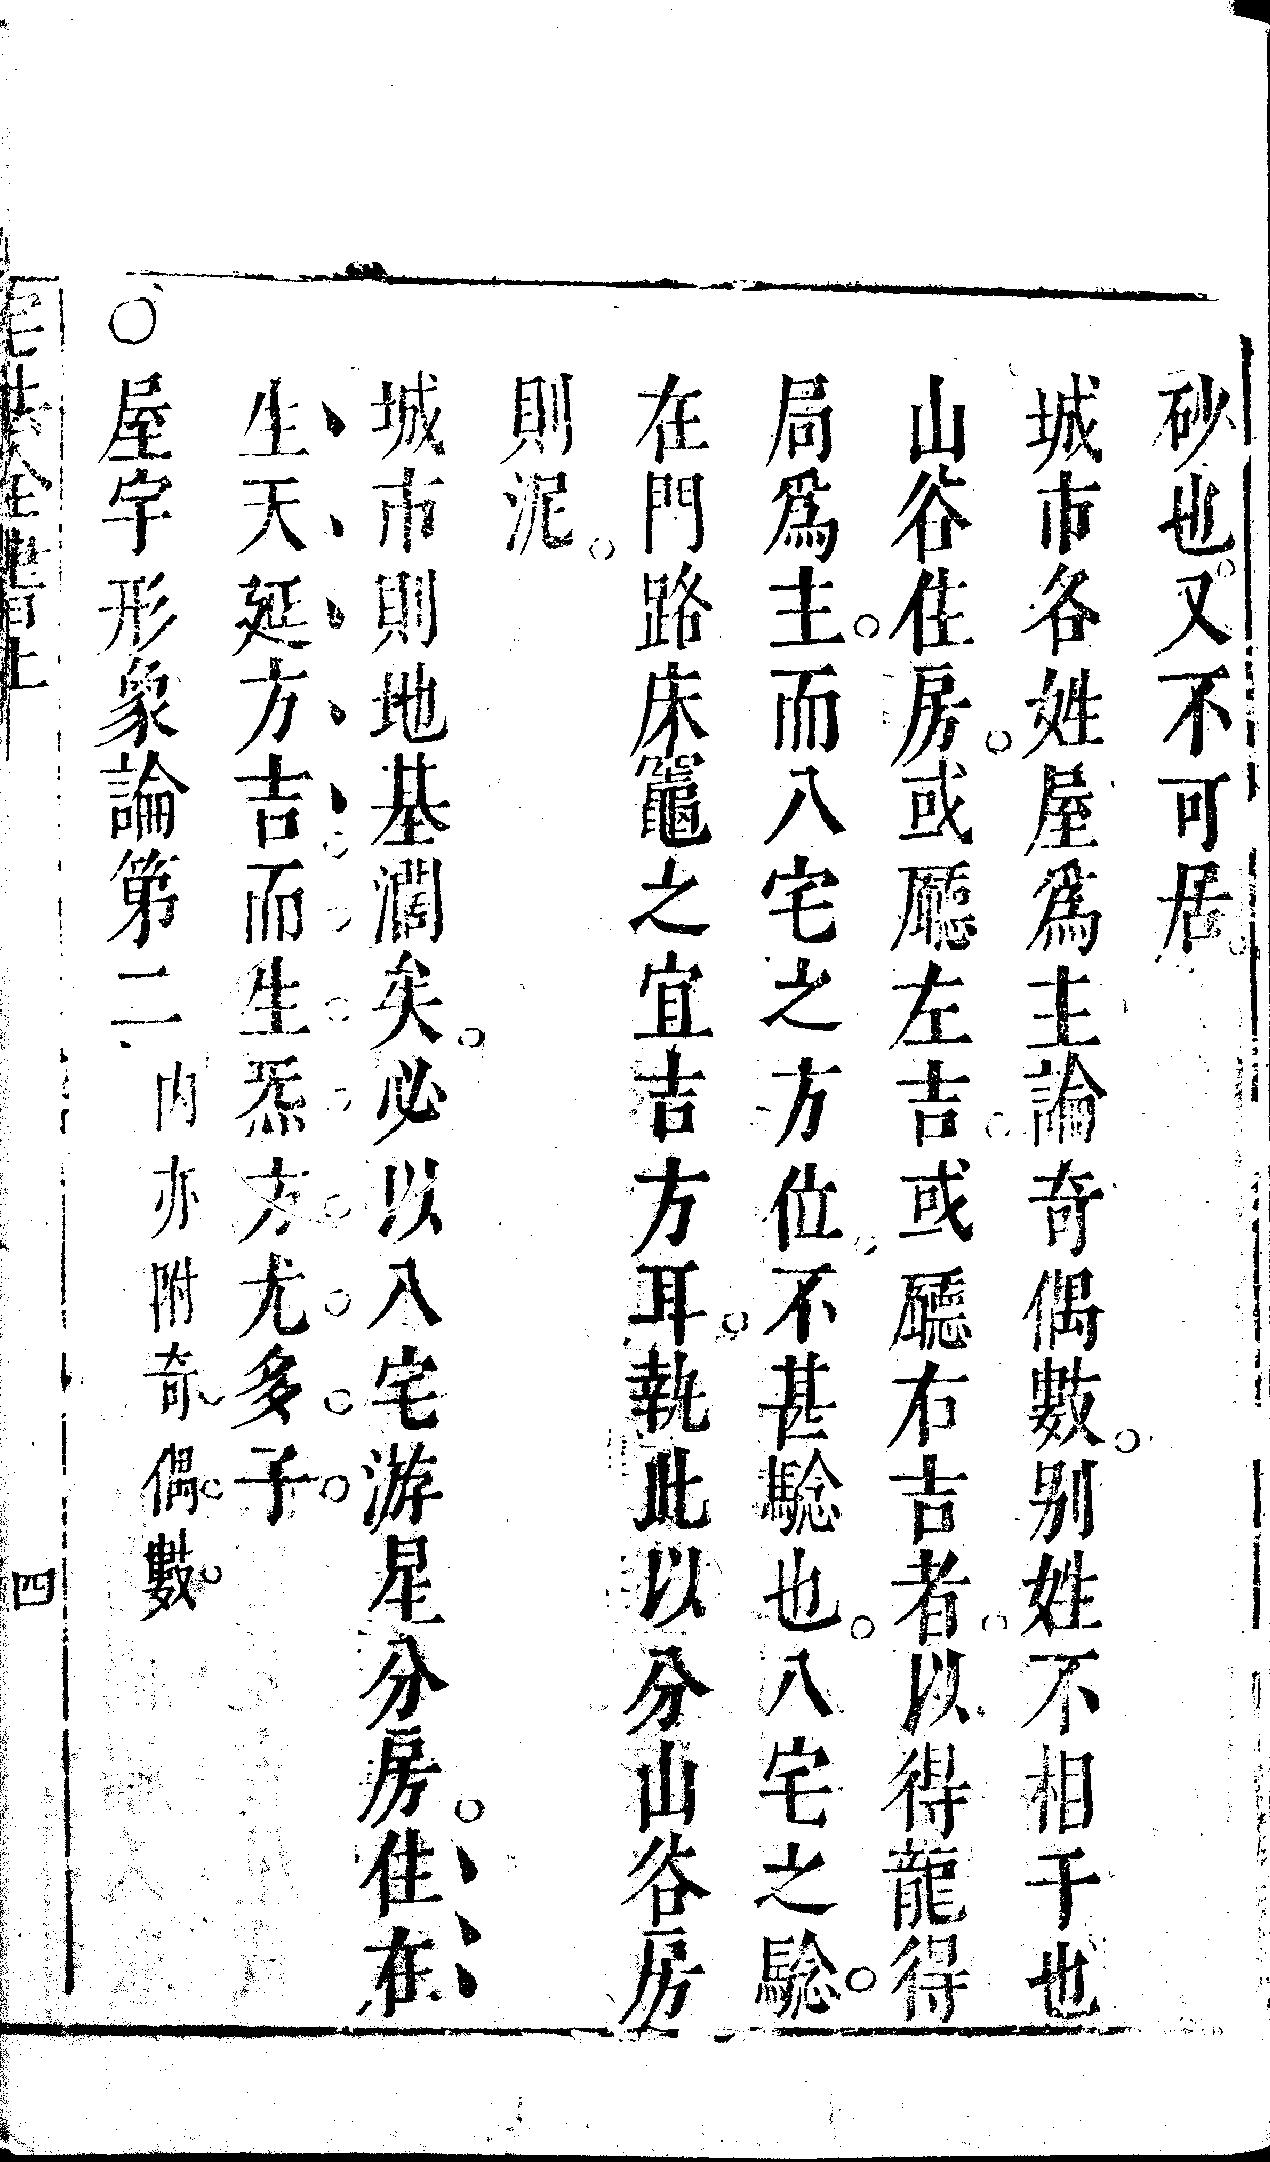 砂也又不可居
城市各姓屋爲主論奇偶數别姓不相干也
山谷住房或廳左吉或廳右吉者以得龍得
局爲主而八宅之方位不甚騐也八宅之騐
在門路床竈之宜吉方耳執此以分山谷房
則泥
城市則地基濶矣必以八宅游星分房住在
生天延方吉而生炁方尤多子
○屋宇形象論第二 内亦附奇偶數
四